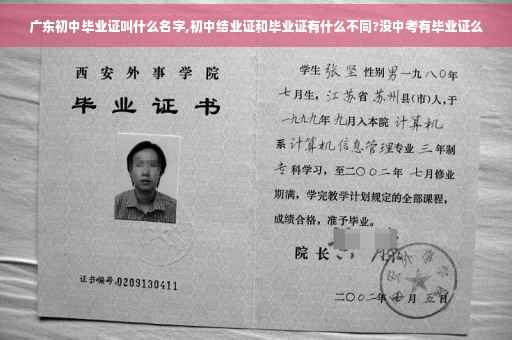 广东初中毕业证叫什么名字,初中结业证和毕业证有什么不同?没中考有毕业证么
西安外事学院
毕业证书
证书编号:0209130411
学生张坚性别男一九八〇年
七月生,江苏省苏州县(市)人,于
一九九九年九月入本院计算机
系计算机信息管理专业三年制
专科学习,至二〇〇二年七月修业
期满,学完教学计划规定的全部课程,
成绩合格,准予毕业。
院长
二〇〇二年 月五日